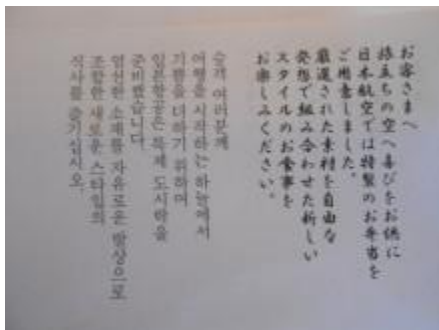 お客さまへ
旅立ちの空へ喜びをお供に
日本航空では特製のお弁当を
ご用意しました。
厳選された素材を自由な
発想で組み合わせた新しい
スタイルのお食事を
お楽しみください。
승객 여러분께
여행을 시작하는 하늘에서
기쁨을 더하기 위하여
일본항공은 특제 도시락을
준비했습니다.
엄선한 소재를 자유로운 발상으로
조합한 새로운 스타일의
식사를 즐기십시오.